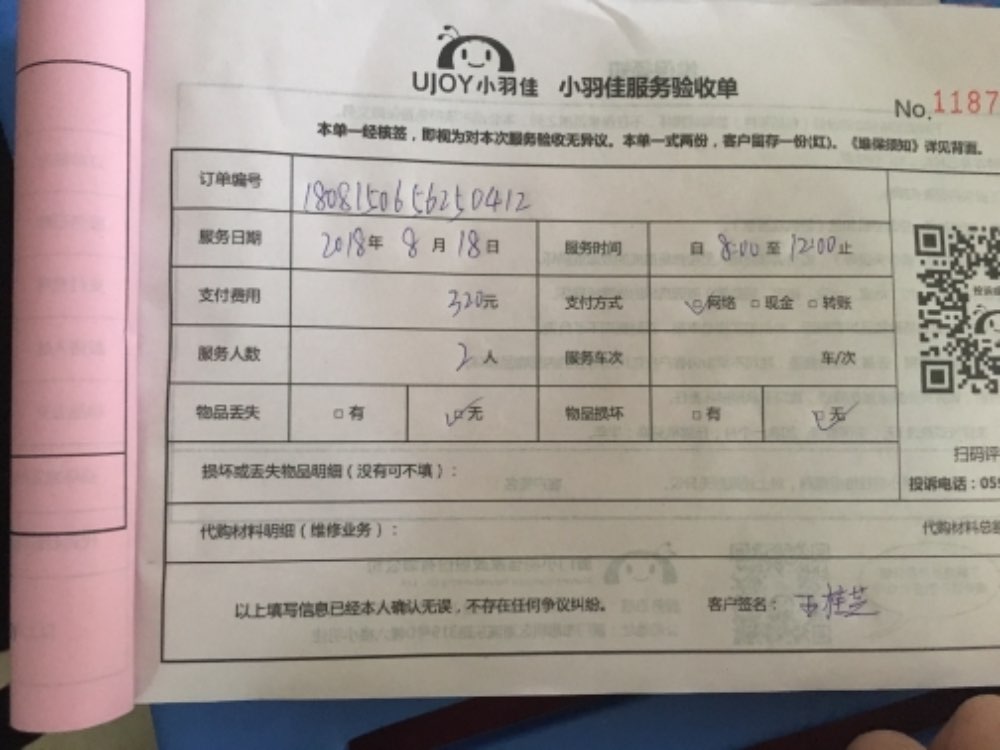 UJOY小羽佳 小羽佳服务验收单
No. 1187
本单一经核签，即视为对本次服务验收无异议。本单一式两份，客户留存一份(红)。《维保须知》详见背面。
订单编号 1808150656250412
服务日期 2018年 8月 18日 服务时间 自 8:00 至 12:00 止
支付费用 320元 支付方式 □网络 □现金 □转账
服务人数 2人 服务车次 车/次
物品丢失 □有 □无 物品损坏 □有 □无
扫码评
损坏或丢失物品明细（没有可不填）：
投诉电话：059
代购材料明细（维修业务）： 代购材料总
以上填写信息已经本人确认无误，不存在任何争议纠纷。 客户签名： 王桂芝